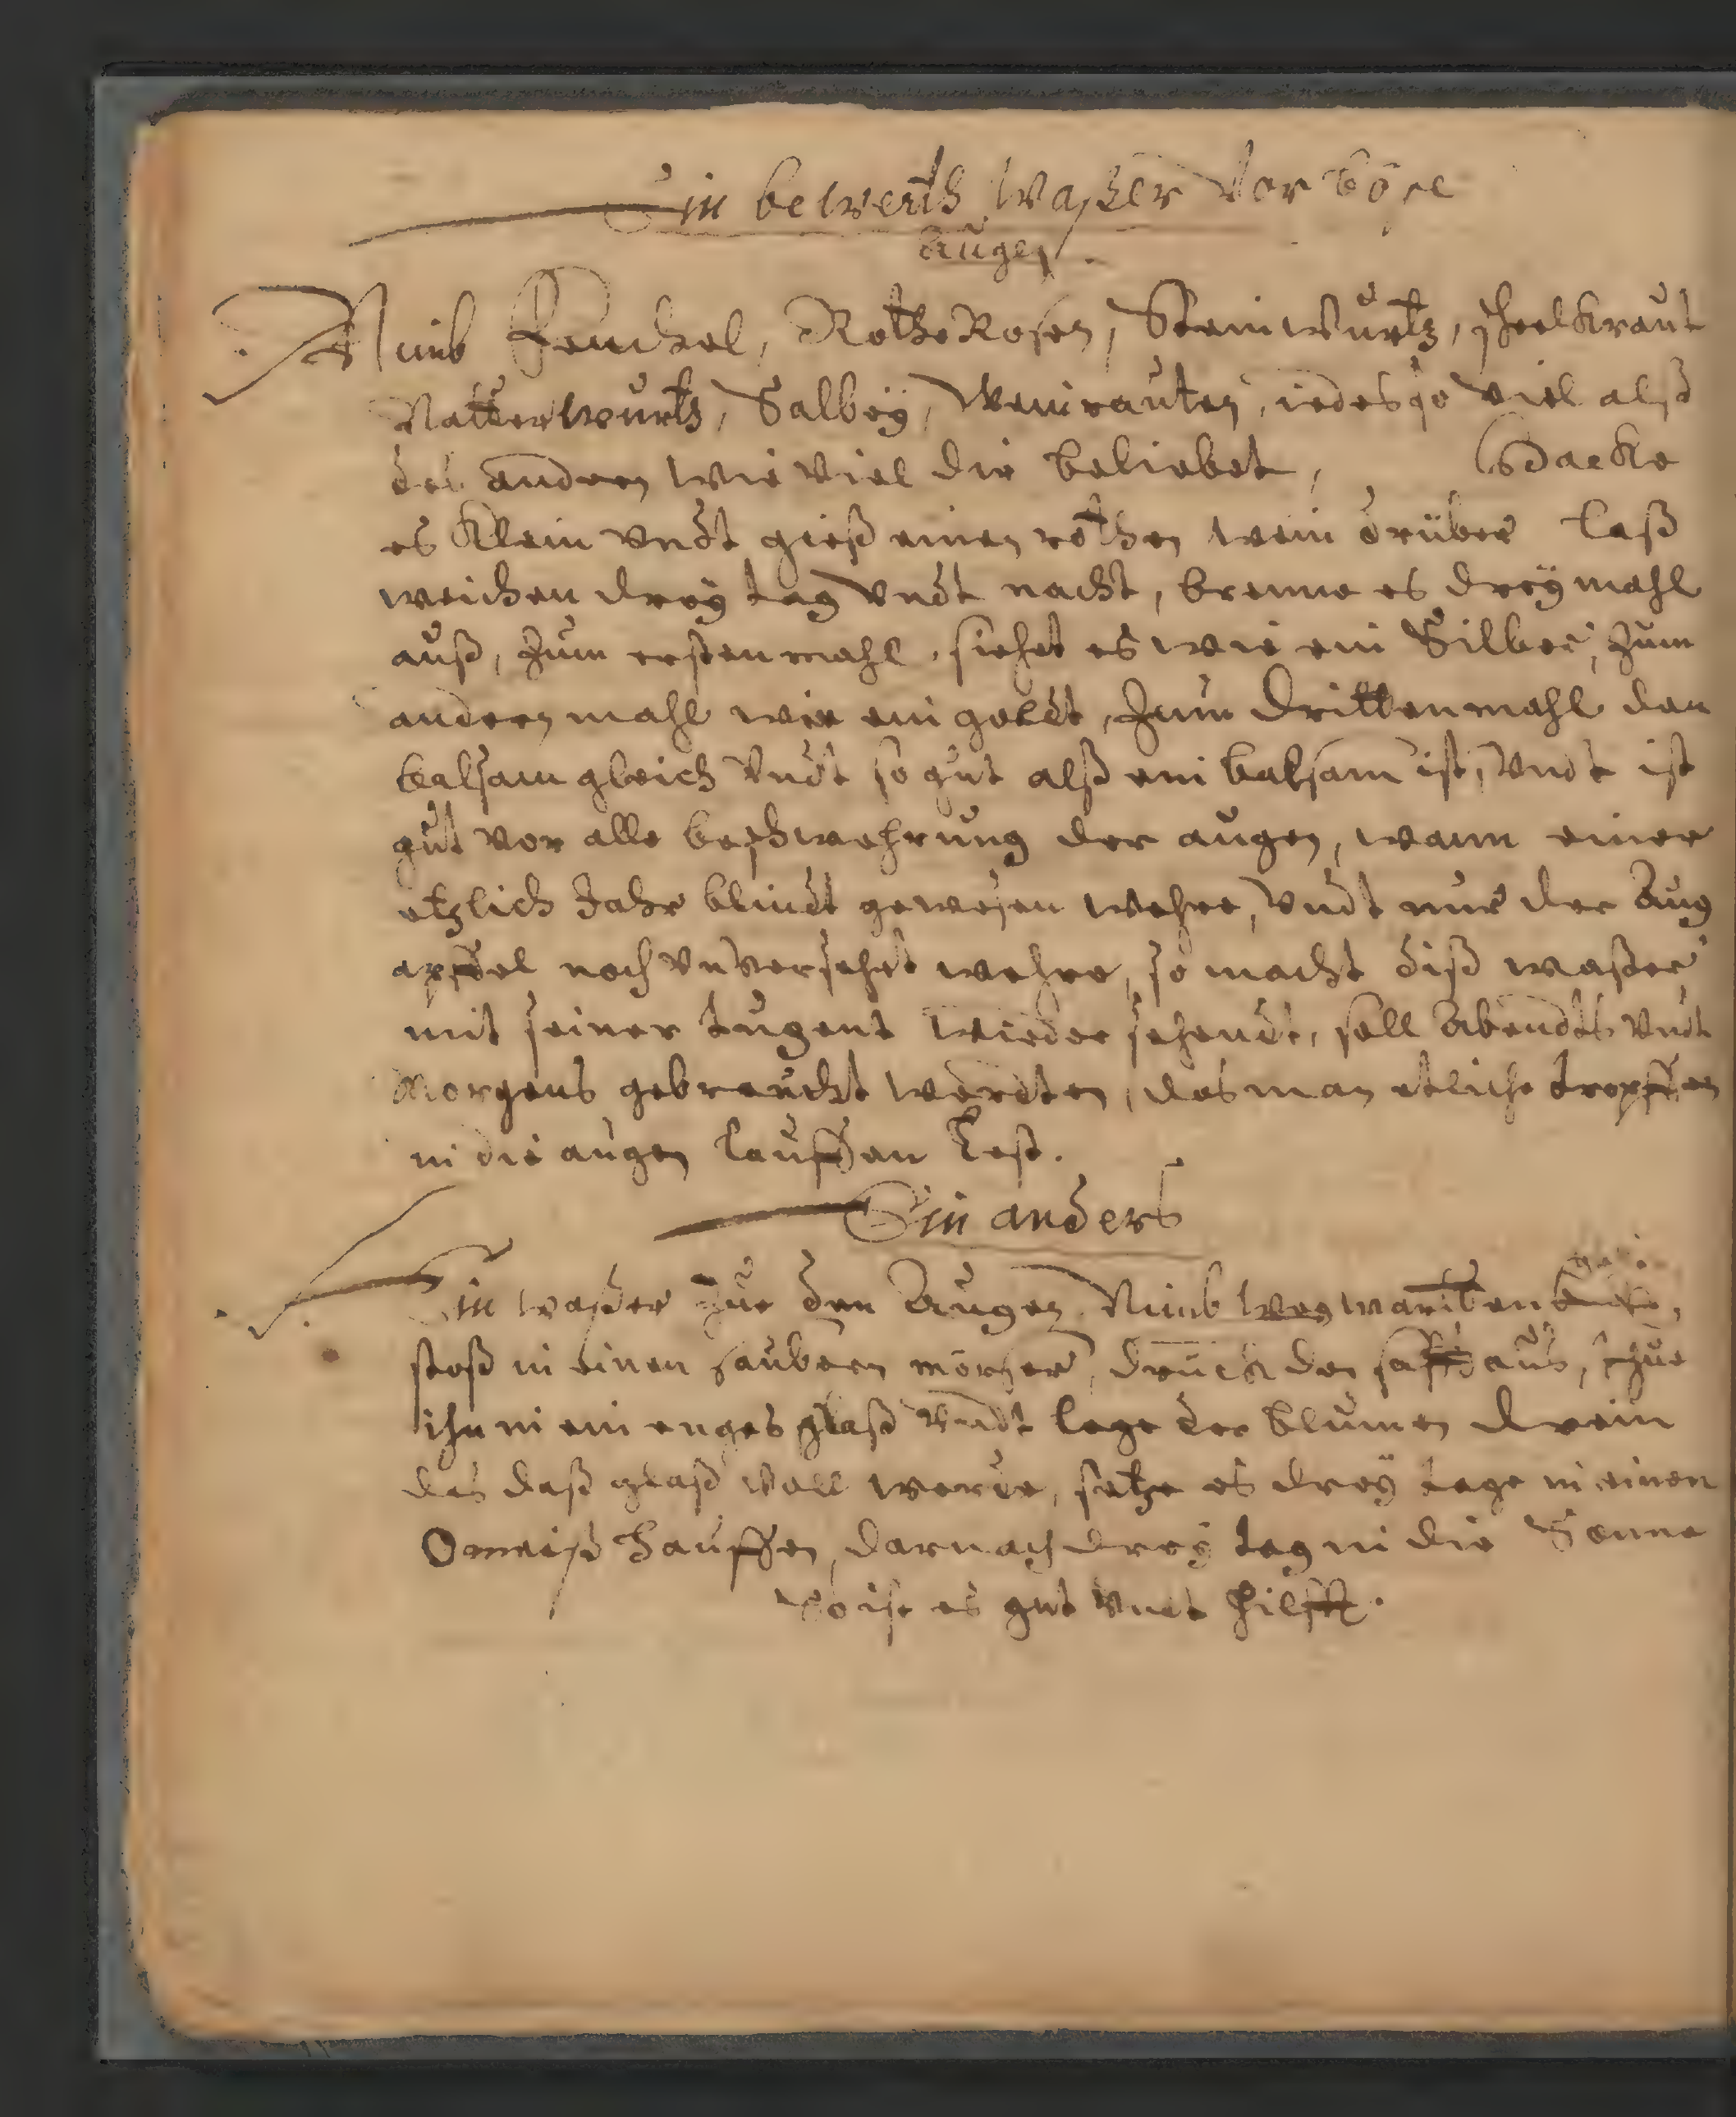 Ein bewerth Waßer Vor böse
Augen.
Nimb Fenchel, Rothe Rosen, Steinwurtz, scheelkraut
Natterwurtz, Salbey, Weinrauten, iedes so viel alß
des andern wie viel dir beliebet, Hacke
es klein vndt gieß einen rothen wein drüber laß
weichen drey tag vndt nacht, brenne es dreymahl
auß, zum ersten mahl siehet es wie ein Silber, zum
andern mahl wie ein goldt, zum dritten mahl dem
balsam gleich vndt so gut alß ein balsam ist, vndt ist
gut vor alle beschwehrung der augen, wann einer
etzlich Jahr blindt gewesen wehre, vndt nur der Aug
apffel noch vnversehrt wehre, so macht diß waßer
mit seiner tugent wieder sehendt, soll Abendts vndt
Morgens gebraucht werdten, das man etliche tropffen
in die augen lauffen lest.
Ein anders
Ein waßer zue den Augen. Nimb wegwarthen
stoß in einen saubern mörßer, druck den safft aus, thue
ihn in ein enges glaß vndt lege der blumen drein
das daß glaß voll werde, setze es drey tage in einen
Omeiß hauffen, darnach drey tag in die Sonne
So ist es gut vndt hilfft.